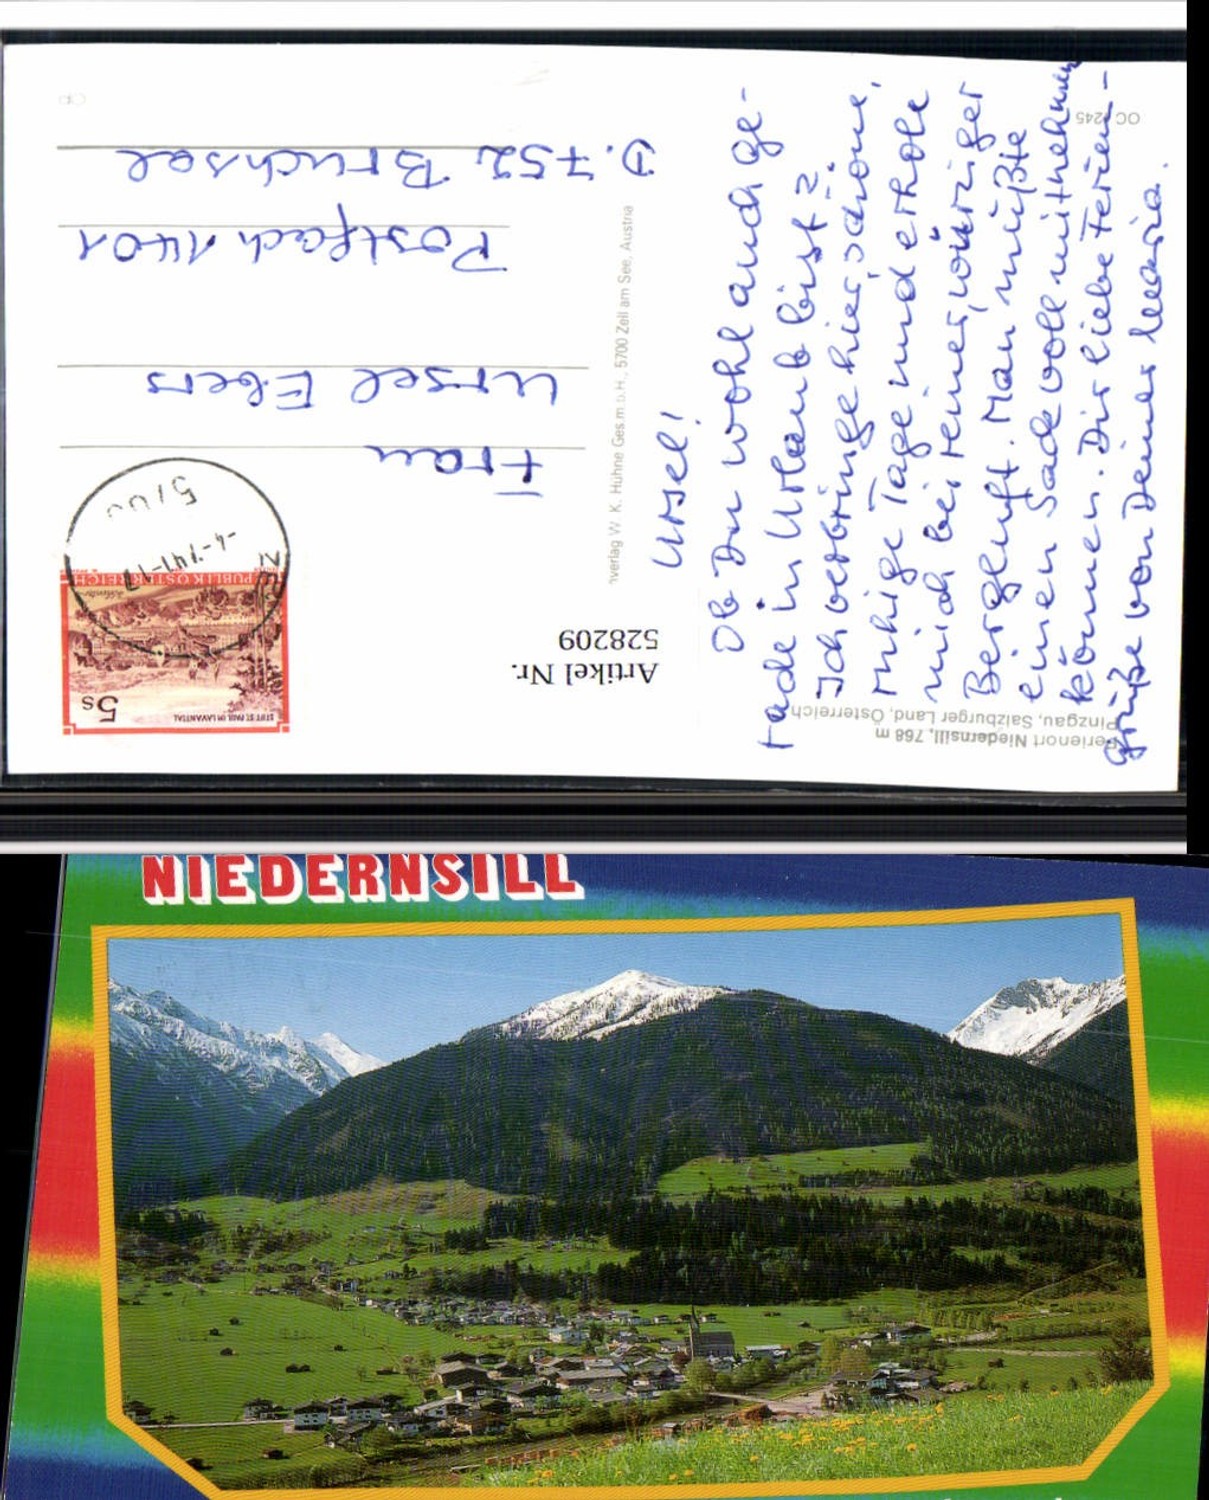 Ursel!
Ob Du wohl auch ge-
rade in Urlaub bist?
Ich verbringe hier schöne,
ruhige Tage und erhole
mich bei reiner, würziger
Bergluft. Man müßte
einen Sack voll mitnehmen
können. Dir liebe Ferien-
grüße von Deiner Maria.
Frau
Ursel Ebers
Postfach 1401
D. 752 Bruchsal
Ferienort Niedernsill, 768 m
Pinzgau, Salzburger Land, Österreich
Artikel Nr.
528209
verlag W. K. Hühne Ges.m.b.H., 5700 Zell am See, Austria
STIFT ST. PAUL IM LAVANTTAL
5s
REPUBLIK ÖSTERREICH
NIEDERNSILL